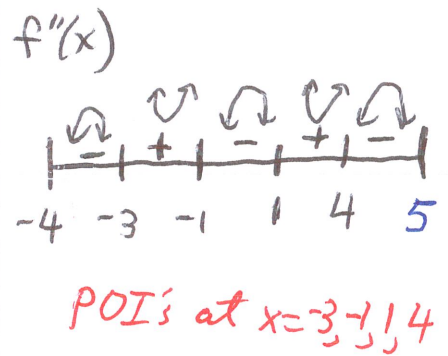 f"(x)
− + − + −
-4 -3 -1 1 4 5
POI's at x=-3,-1,1,4